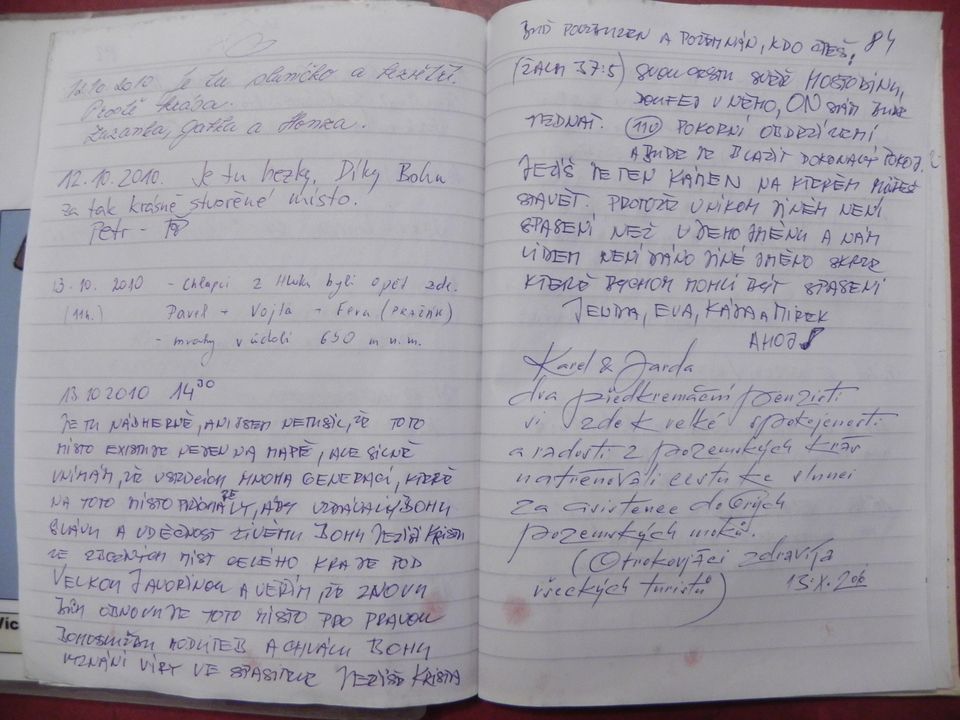 12.10.2010 Je tu sluníčko a
Prostě krása.
Zuzanka, Gatka a Honza.
12.10.2010. Je tu hezky. Díky Bohu
za tak krásně stvořené místo.
Petr -
13.10.2010 - chlapci z Hluku byli opět zde.
(11h.) Pavel + Vojta + Fera (PRAŽÁK)
- mraky v údolí 650 m n.m.
13 10 2010 14 30
JE TU NÁDHERNĚ, ANI JSEM NETUŠIL, ŽE TOTO
MÍSTO EXISTUJE NEJEN NA MAPĚ, ALE SILNĚ
VNÍMÁM, ŽE V SRDCÍCH MNOHA GENERACÍ, KTERÉ
NA TOTO MÍSTO, ABY VZDÁVALY BOHU
SLÁVU A VDĚČNOST ŽIVÉMU BOHU JEŽÍŠI KRISTU
ZE MÍST CELÉHO KRAJE POD
VELKOU JAVOŘINOU A VĚŘÍM, ŽE ZNOVU
BŮH OBNOVUJE TOTO MÍSTO PRO PRAVOU
BOHOSLUŽBU MODLITEB A CHVÁLU BOHU
VYZNÁNÍ VÍRY VE SPASITELE JEŽÍŠE KRISTA
84
BUĎ POVZBUZEN A POŽEHNÁN, KDO ČTEŠ,
(ŽALM 37:5) SVOU CESTU SVĚŘ HOSPODINU,
DOUFEJ V NĚHO, ON SÁM BUDE
JEDNAT. (11V) POKORNÍ OBDRŽÍ ZEMI
A BUDE JE BLAŽIT DOKONALÝ POKOJ.
JEŽÍŠ JE TEN KÁMEN NA KTERÉM MŮŽEŠ
STAVĚT. PROTOŽE V NIKOM JINÉM NENÍ
SPASENÍ NEŽ V JEHO JMÉNU A NÁM
LIDEM NENÍ DÁNO JINÉ JMÉNO SKRZE
KTERÉ BYCHOM MOHLI BÝT SPASENI
EVA, KÁJA A MIREK
AHOJ
Karel & Jarda
dva předkremační penzisti
si zde k velké spokojenosti
a radosti z pozemských krás
natrénovali cestu ke slunci
za asistence dobrých
pozemských moků.
(Otrokovjáci zdravíja
všeckých turistů) 13.X.